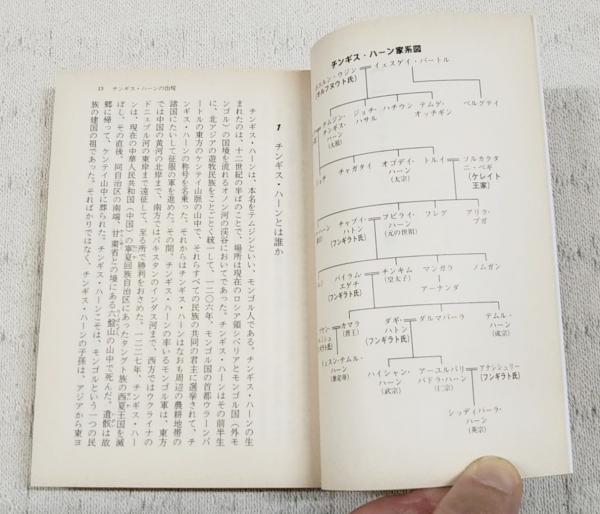 13　チンギス・ハーンの出現
1　チンギス・ハーンとは誰か
チンギス・ハーンは、本名をテムジンといい、モンゴル人である。チンギス・ハーンの生
まれたのは、十二世紀の半ばのことで、場所は現在のロシア領シベリアとモンゴル国（外モ
ンゴル）の国境を流れるオノン河の渓谷においてであった。チンギス・ハーンはその前半生
に、北アジアの遊牧民族をことごとく統一して、一二〇六年、モンゴル国の首都ウラーンバ
ートルの東方のケンテイ山脈の山中で、それらすべての民族の共同の君主に選挙されて、チ
ンギス・ハーンの称号を名乗った。それからはチンギス・ハーンはなおも周辺の農耕地帯の
諸国にたいして征服の軍を進めた。その間、チンギス・ハーンの率いるモンゴル軍は、東方
では中国の黄河の北岸まで、南方ではパキスタンのインダス河まで、西方ではウクライナの
ドニェプル河の東岸まで遠征して、至る所で勝利をおさめた。一二二七年、チンギス・ハー
ンは、現在の中華人民共和国（中国）の寧夏回族自治区にあったタングト族の西夏王国を滅
ぼし、その直後、同自治区の南端、甘粛省との境にある六盤山の山中で死んだ。遺骸は故
郷に帰って、ケンテイ山中に葬られた。チンギス・ハーンこそは、モンゴルという一つの民
族の建国の祖であった。そればかりではなく、チンギス・ハーンの子孫は、アジアから東ヨ
チンギス・ハーン家系図
イェスゲイ・バートル
ウジン
（オルクヌウト氏）
テムジン・
チンギス・
ハーン
（太祖）
ジョチ・
ハサル
ハチウン
テムゲ・
オッチギン
ベルグテイ
チャガタイ
オゴデイ・
ハーン
（太宗）
トルイ
ソルカクタ
ニ・ベギ
（ケレイト
王家）
チャブイ・
ハトン
（フンギラト氏）
フビライ・
ハーン
（元の世祖）
フレグ
アリク・
ブガ
バイラム・
エゲチ
（フンギラト氏）
チンキム
（皇太子）
マンガラ
アーナンダ
ノムガン
カマラ
（晋王）
ダギ・
ハトン
（フンギラト氏）
ダルマバーラ
テムル・
ハーン
（成宗）
ハイシャン・
ハーン
（武宗）
アーユルバリ
バドラ・ハーン
（仁宗）
アナシシュリー
（フンギラト氏）
シッディパーラ・
ハーン
（英宗）